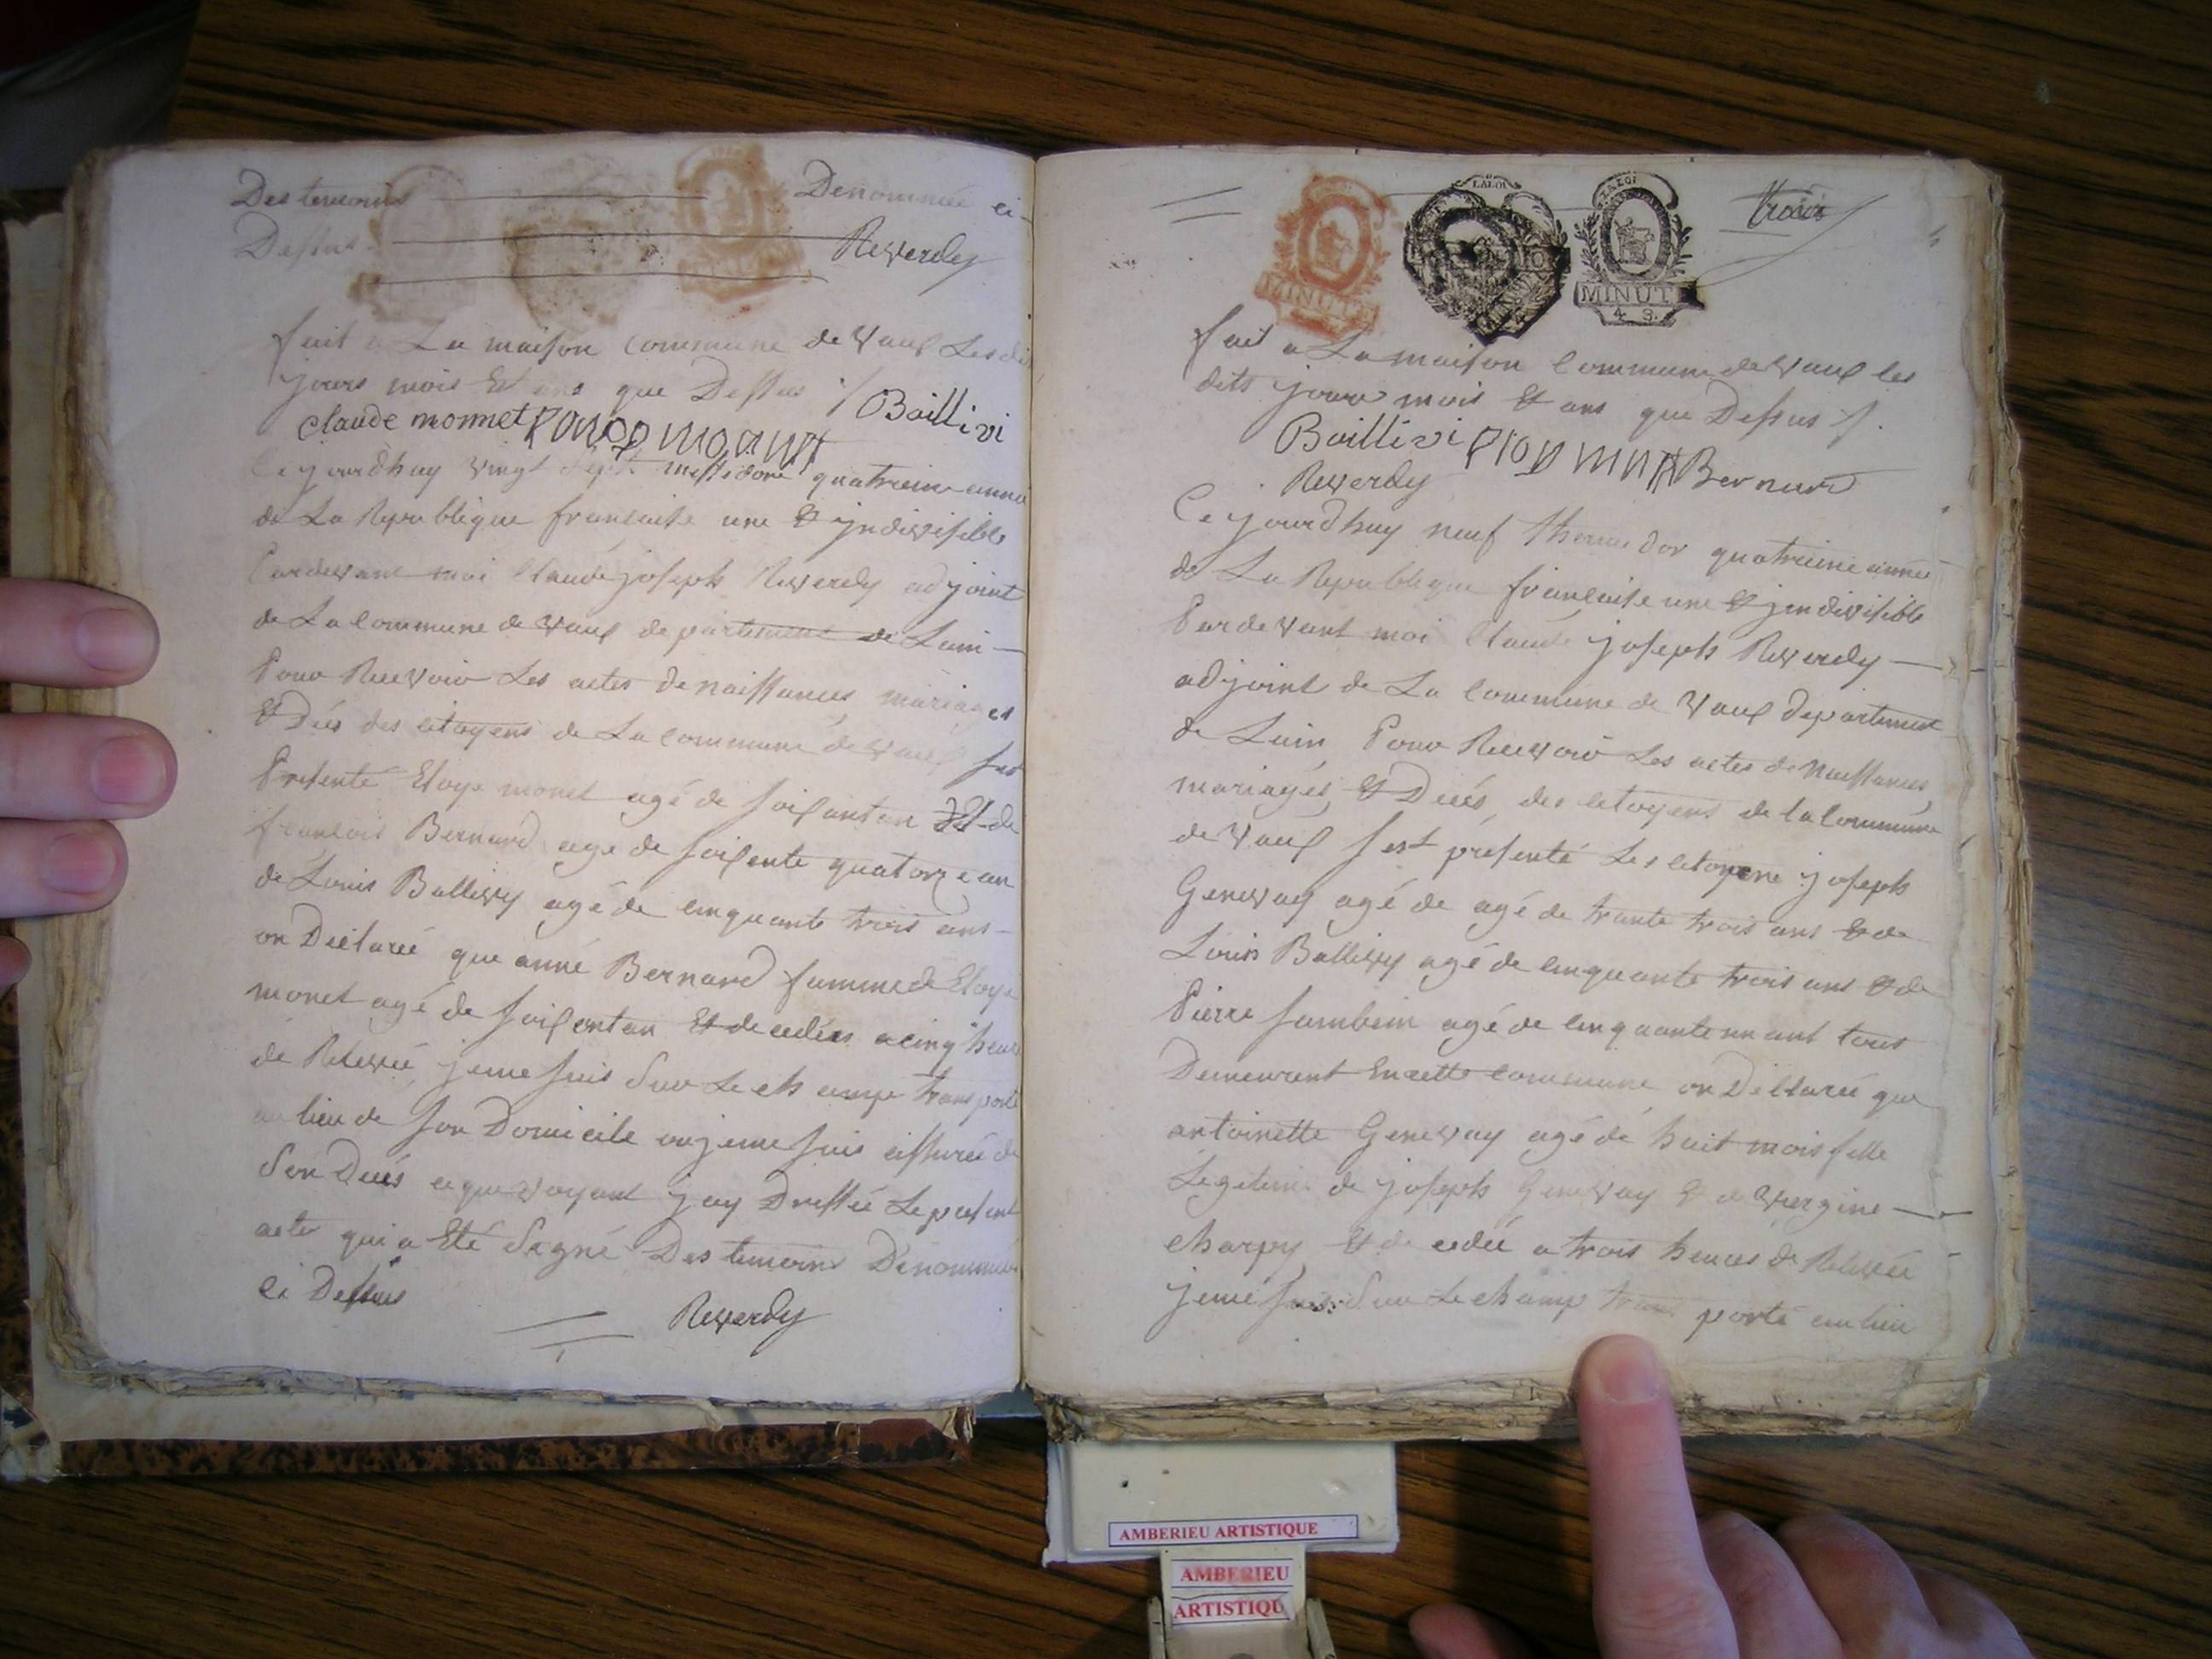 Des temoins Denommée ci
Dessus Reverdy
fait a La maison commune de Vaux Lesdi
jours mois Et ans que Dessus ./. Baillivi
claude monnet
Cejourdhuy vingt sept messidore quatrieme anné
de La Republique francaise une & jndivisible
Pardevant moi Claude joseph Reverdy adjoint
de La Commune de Vaux departement de Lain
Pour Recevoir Les actes de naissances mariages
& Décés des citoyens de La commune de Vaux sest
Presenté Eloye monet agé de soixantan Et de
francois Bernard age de soixente quatorze an
de Louis Ballivy agé de cinquante trois ans
on Déclareé que anné Bernard famme de Eloye
monet agé de soixentan Et decedées a cinq heure
de Relevée jeme suis Sur Le champ transporté
au lieu de son Domicile ou jeme suis assureé de
Son Decés ce que voyant jay Dressée Le present
acte qui a Eté Signé Des temoins Dénommées
Ci Dessus Reverdy
LALOI LALOI trois
MINUT MINUT
4 S.
fait a La maison Commune de Vaux les
dits jours mois & ans que Dessus ./.
Baillivi Bernard
Reverdy
Cejourdhuy neuf thermidor quatrieme anné
de La Republique francaise une & jndivisible
Pardevant moi Claude joseph Reverdy
adjoint de La Commune de Vaux departement
de Lain Pour Recevoir Les actes de Naissances
mariages & Décés des citoyens de la Commune
de Vaux sest présenté Les citoyene joseph
Genevay agé de agé de trante trois ans & de
Louis Ballivy agé de cinquante trois ans & de
Pierre Jambein agé de cinquante un ant tous
Demeurent Encette commune on Déclareé que
antoinette Genevay agé de huit mois fille
Legitime de joseph Genevay & de Vergine
charpy & de cedée a trois heures de Relevée
jeme suis Sur Le champ trans porté au lieu
AMBERIEU ARTISTIQUE
AMBERIEU
ARTISTIQU